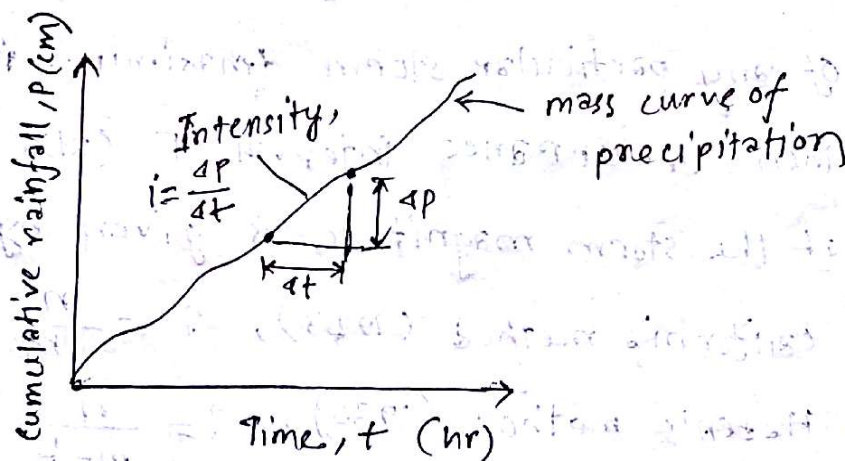 Cumulative rainfall, P(cm)
Intensity,
i = ΔP/Δt
mass curve of
precipitation
ΔP
Δt
Time, t (hr)